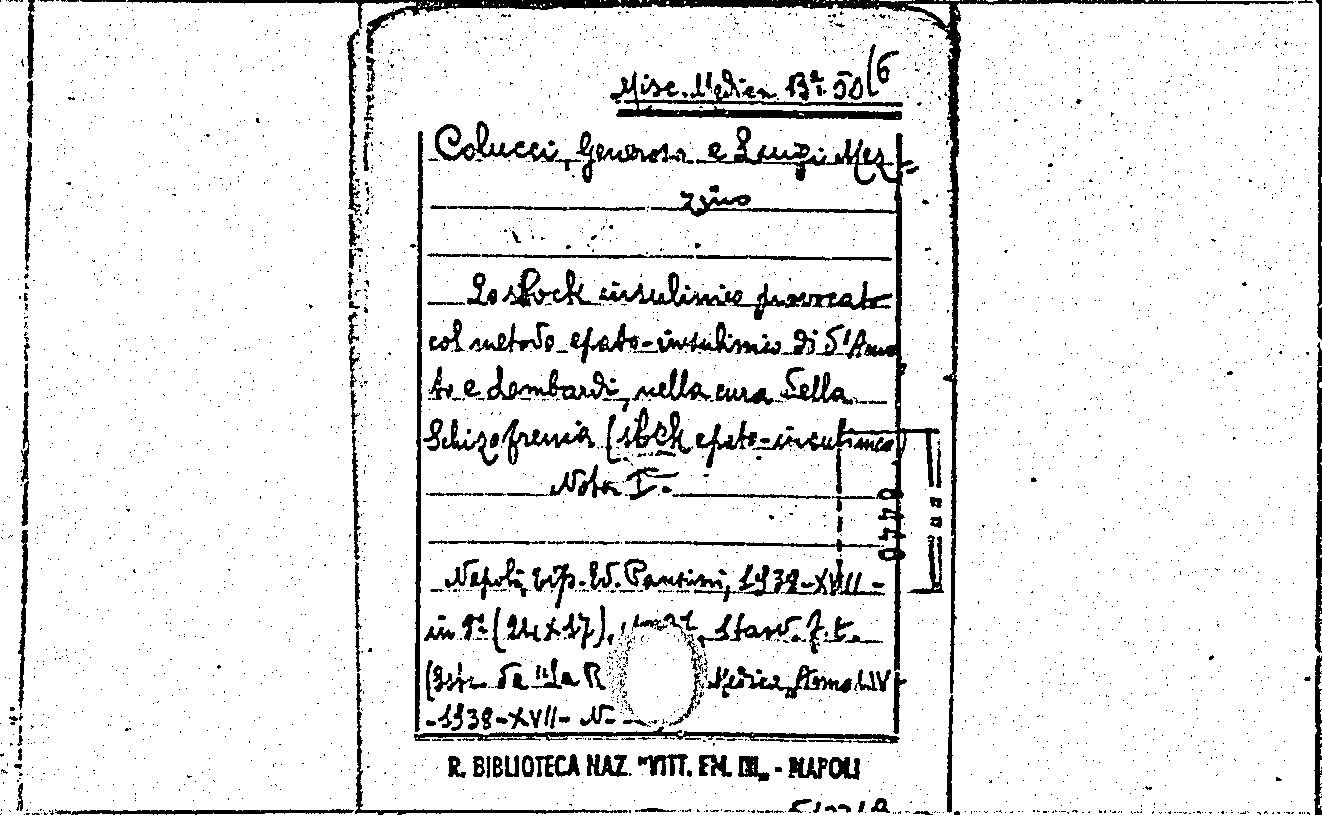 Misc. Medica Bª. 50(6
Colucci, Generoso e Luigi Mez=
zino
Lo shock insulinico provocato
col metodo epato-insulinico di D'Ama
to e Lombardi, nella cura della
Schizofrenia (shock epato-insulinico)
Nota I.-
Napoli, tip. Ed. Pantini, 1938-XVII-
in 8º (24x17), 1 tav. f.t.
(Estr. da "La R Medica" Anno LIV-
-1938-XVII- N-
0440
R. BIBLIOTECA NAZ. "VITT. EM. III„ - NAPOLI